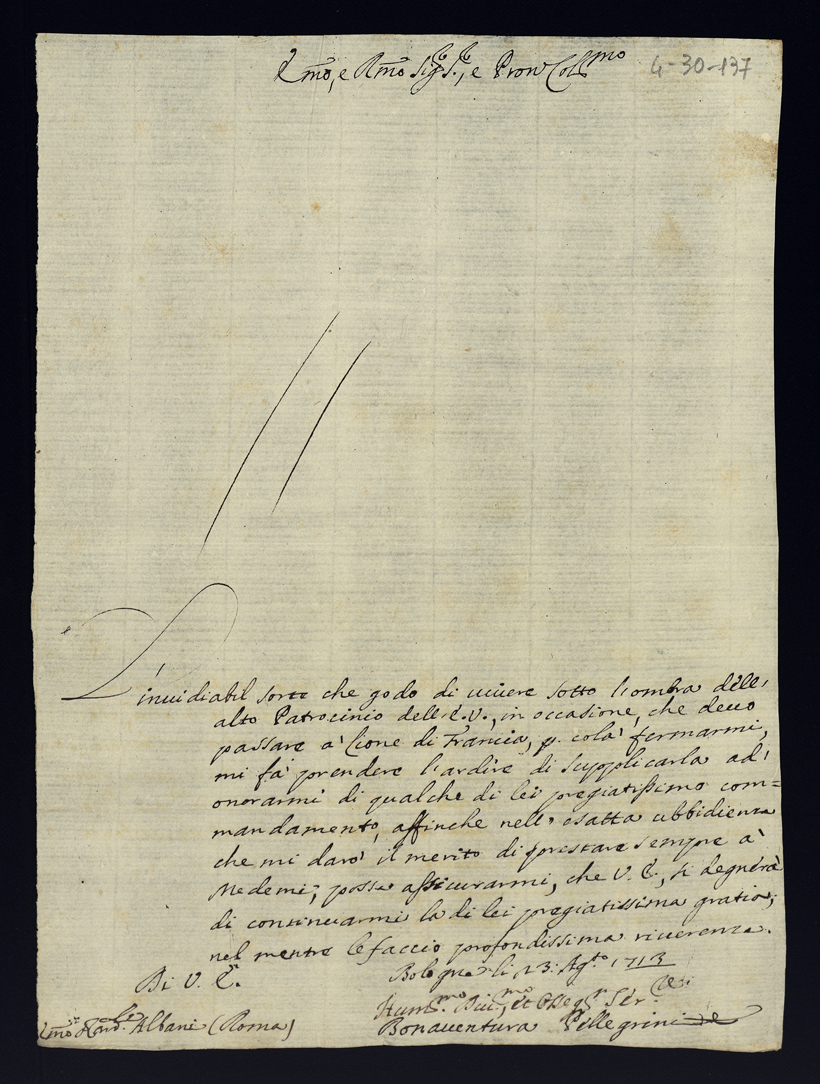 Emo, e Rmo Sigr. Sr., e Pron Collmo
4-30-137
L'inuidiabil sorte che godo di uiuere sotto l'ombra dell'
alto Patrocinio dell'E.V., in occasione, che deuo
passare à Lione di Francia, p. colà fermarmi,
mi fà prendere l'ardire di supplicarla ad'
onorarmi di qualche di lei pregiatissimo com=
mandamento, affinche nell'esatta ubbidienza
che mi darò il merito di prestare sempre à
Medemi, possa assicurarmi, che V.E., si degnerà
di continuarmi la di lei pregiatissima gratia;
nel mentre le faccio profondissima riuerenza.
Di V. E.
Bologna li 23: Agto 1713
Hummo Diumo, et Obbgo Serre
Emo Sr Cardle Albani (Roma)
Bonauentura Pellegrini